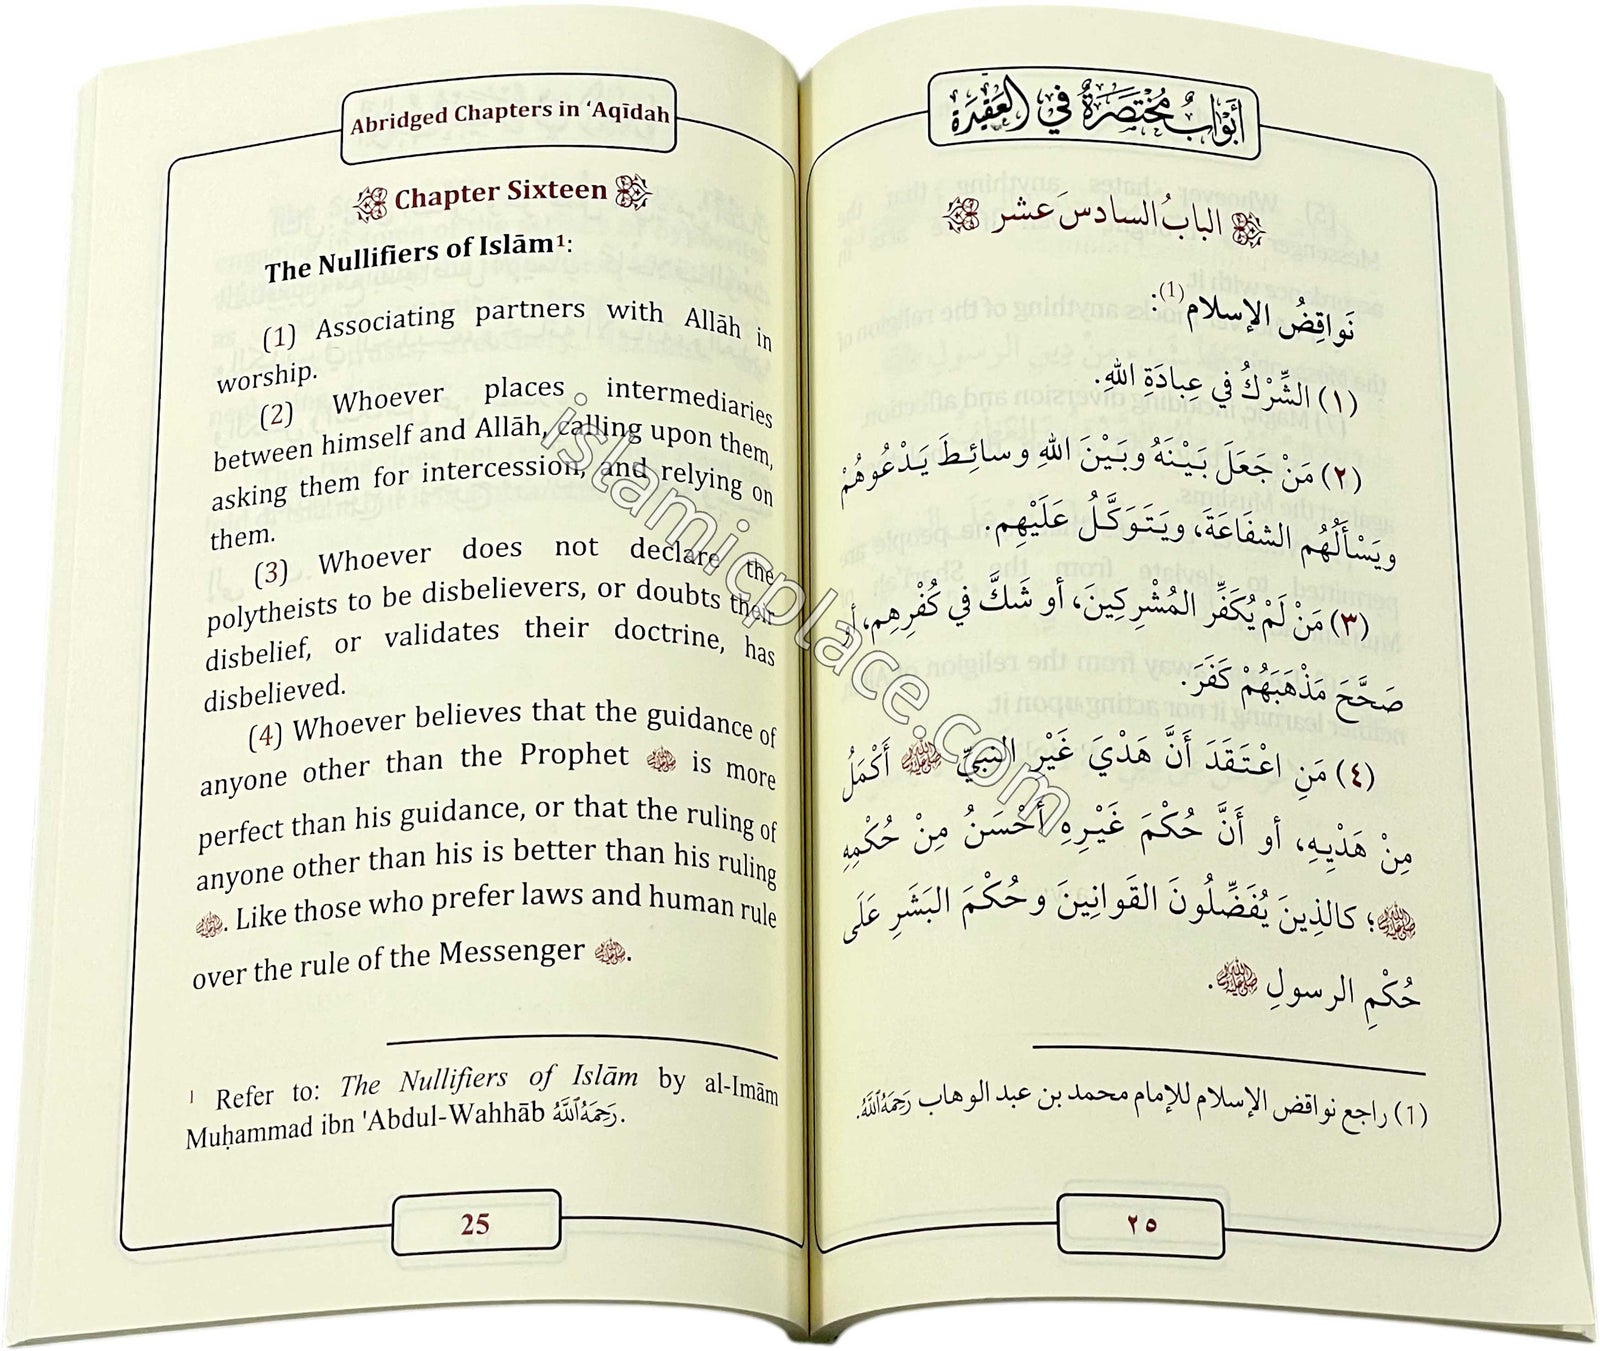 Abridged Chapters in ‘Aqīdah
Chapter Sixteen
The Nullifiers of Islām¹:
(1) Associating partners with Allāh in
worship.
(2) Whoever places intermediaries
between himself and Allāh, calling upon them,
asking them for intercession, and relying on
them.
(3) Whoever does not declare the
polytheists to be disbelievers, or doubts their
disbelief, or validates their doctrine, has
disbelieved.
(4) Whoever believes that the guidance of
anyone other than the Prophet ﷺ is more
perfect than his guidance, or that the ruling of
anyone other than his is better than his ruling
ﷺ. Like those who prefer laws and human rule
over the rule of the Messenger ﷺ.
¹ Refer to: The Nullifiers of Islām by al-Imām
Muḥammad ibn 'Abdul-Wahhāb رَحِمَهُ ٱللَّهُ.
25
أَبْوَابٌ مُخْتَصَرَةٌ فِي العَقِيدَة
البابُ السادسَ عشر
نَواقِضُ الإسلام(1):
(١) الشِّرْكُ في عِبادَةِ اللهِ.
(٢) مَنْ جَعَلَ بَيْنَهُ وبَيْنَ اللهِ وسائِطَ يَدْعُوهُمْ
ويَسْأَلُهُم الشفَاعَةَ، ويَتَوَكَّلُ عَلَيْهِم.
(٣) مَنْ لَمْ يُكَفِّرِ المُشْرِكِينَ، أو شَكَّ في كُفْرِهِم، أو
صَحَّحَ مَذْهَبَهُمْ كَفَرَ.
(٤) مَنِ اعْتَقَدَ أَنَّ هَدْيَ غَيْرِ النبيِّ ﷺ أَكْمَلُ
مِنْ هَدْيِهِ، أو أَنَّ حُكْمَ غَيْرِهِ أَحْسَنُ مِنْ حُكْمِهِ
ﷺ؛ كالذِينَ يُفَضِّلُونَ القَوانِينَ وحُكْمَ البَشَرِ عَلَى
حُكْمِ الرسولِ ﷺ.
(1) راجع نواقض الإسلام للإمام محمد بن عبد الوهاب رَحِمَهُ ٱللَّهُ.
٢٥
islamicplace.com